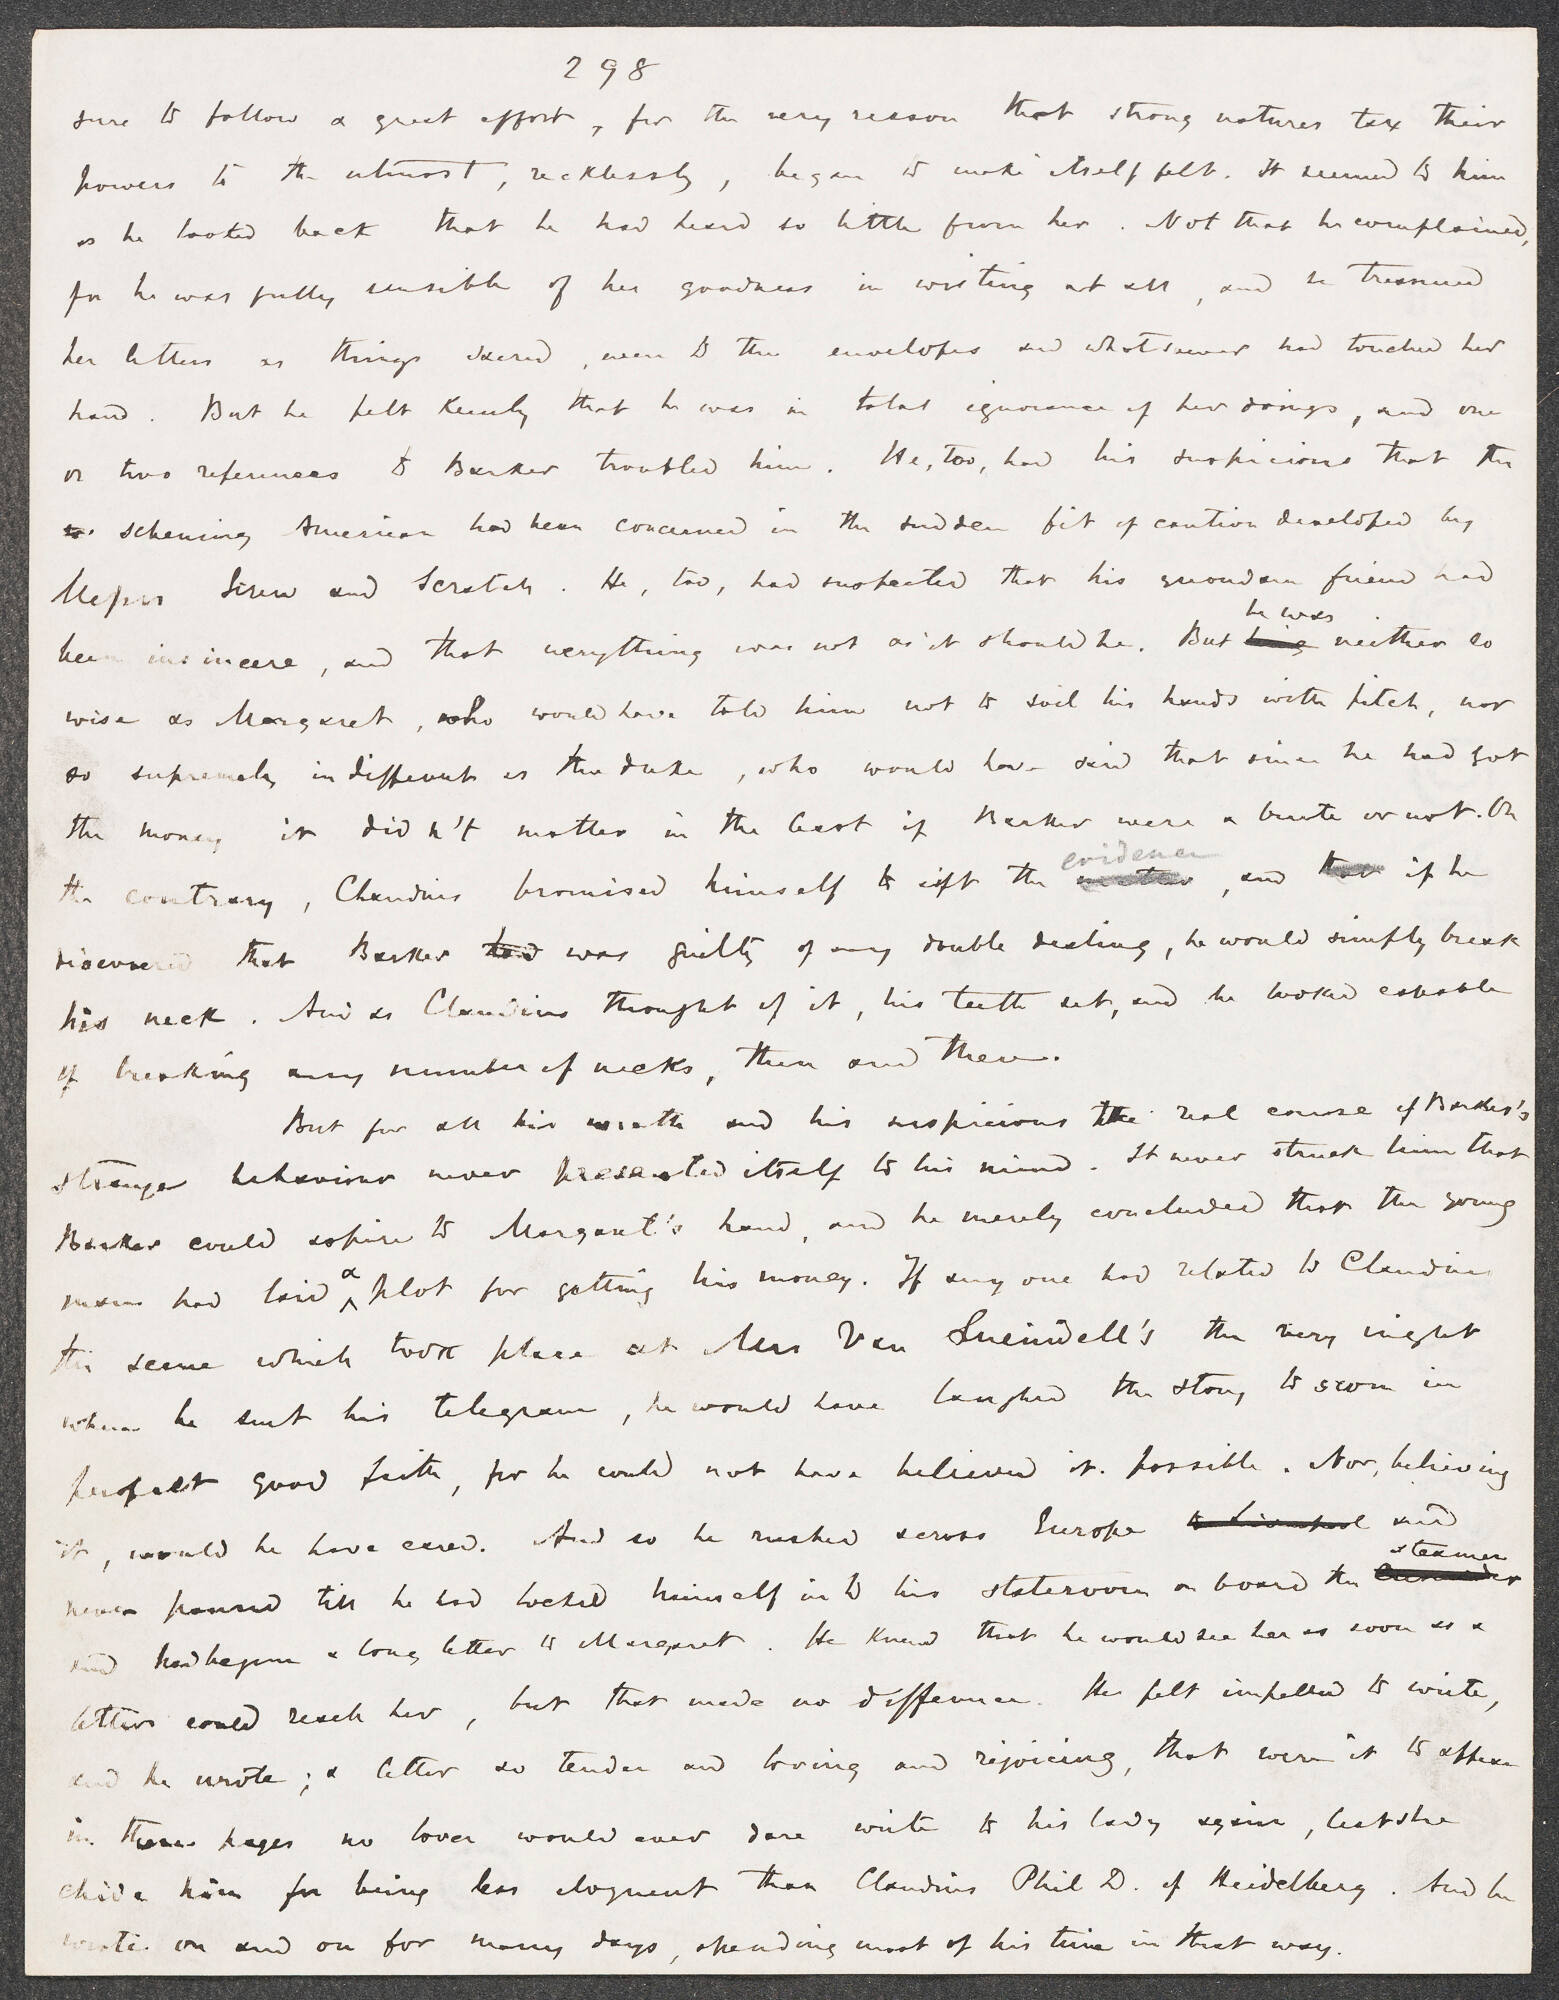 298
sure to follow a great effort, for the very reason that strong natures tax their
powers to the utmost, recklessly, began to make itself felt. It seemed to him
as he looked back that he had heard so little from her. Not that he complained,
for he was fully sensible of her goodness in writing at all, and he treasured
her letters as things sacred, even to the envelopes and whatsoever had touched her
hand. But he felt keenly that he was in total ignorance of her doings, and one
or two references to Barker troubled him. He, too, had his suspicions that the
scheming American had been concerned in the sudden fit of caution developed by
Messrs Screw and Scratch. He, too, had suspected that his quondam friend had
been insincere, and that everything was not as it should be. But being he was neither so
wise as Margaret, who would have told him not to soil his hands with pitch, nor
so supremely indifferent as the duke, who would have said that since he had got
the money it didn't matter in the least if Barker were a brute or not. On
the contrary, Claudius promised himself to sift the matter evidence, and that if he
discovered that Barker had was guilty of any double dealing, he would simply break
his neck. And as Claudius thought of it, his teeth set, and he looked capable
of breaking any number of necks, then and there.
But for all his wrath and his suspicions the real course of Barker's
strange behaviour never presented itself to his mind. It never struck him that
Barker could aspire to Margaret's hand, and he merely concluded that the young
man had laid a plot for getting his money. If any one had related to Claudius
the scene which took place at Mrs Van Sueindell's the very night
when he sent his telegram, he would have laughed the story to scorn in
perfect good faith, for he could not have believed it possible. Nor, believing
it, would he have cared. And so he rushed across Europe to Liverpool and
never paused till he had locked himself into his stateroom on board the steamer
and had begun a long letter to Margaret. He knew that he would see her as soon as a
letter could reach her, but that made no difference. He felt impelled to write,
and he wrote; a letter so tender and loving and rejoicing, that were it to appear
in these pages no lover would ever dare write to his lady again, lest she
chide him for being less eloquent than Claudius Phil D. of Heidelberg. And he
wrote on and on for many days, spending most of his time in that way.